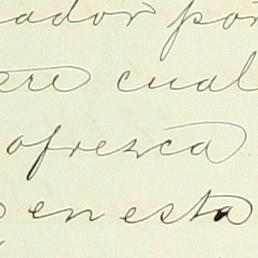 ador por
ere cual
ofrezca
en esta